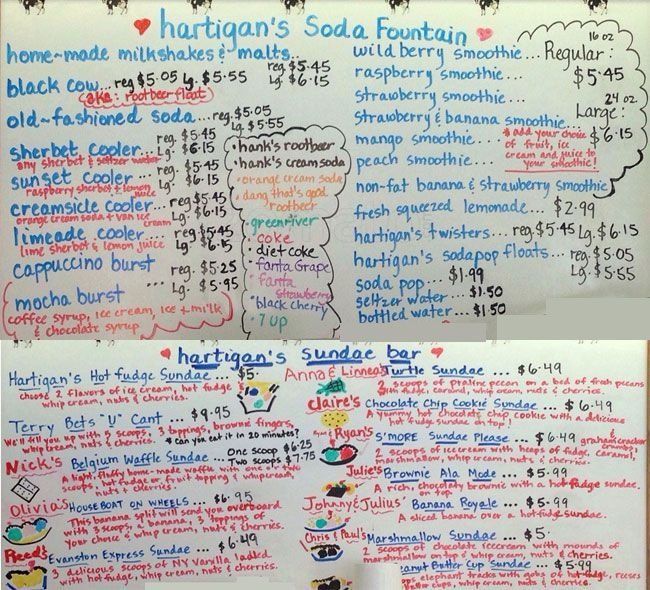 hartigan's Soda Fountain
home~made milkshakes & malts..
reg $5.45
Lg. $6.15
black cow...reg $5.05 Lg. $5.55
aka: rootbeer float
old~fashioned soda...reg. $5.05
Lg. $5.55
sherbet cooler... reg. $5.45
Lg. $6.15
any sherbet & seltzer water
sunset cooler ... reg. $5.45
Lg. $6.15
raspberry sherbet & lemon juice
creamsicle cooler... reg $5.45
Lg. $6.15
orange cream soda & van ice cream
limeade cooler... reg $5.45
Lg. $6.15
lime sherbet & lemon juice
cappuccino burst
... reg. $5.25
Lg. $5.95
mocha burst
coffee syrup, ice cream, ice & milk
& chocolate syrup
• hank's rootbeer
• hank's cream soda
• orange cream soda
• dang that's good
rootbeer
• green river
• coke
• diet coke
• fanta Grape
• fanta
strawberry
• black cherry
• 7 up
wild berry smoothie...
raspberry smoothie...
strawberry smoothie...
strawberry & banana smoothie...
mango smoothie...
peach smoothie...
non-fat banana & strawberry smoothie
16 oz
Regular:
$5.45
24 oz
Large:
$6.15
$ add your choice
of fruit, ice
cream and juice to
your smoothie!
fresh squeezed lemonade... $2.99
hartigan's twisters...reg. $5.45 Lg. $6.15
hartigan's sodapop floats...reg. $5.05
Lg. $5.55
soda pop... $1.99
seltzer water... $1.50
bottled water... $1.50
hartigan's sundae bar
Hartigan's Hot fudge Sundae ... $5.
choose 2 flavors of ice cream, hot fudge
whip cream, nuts & cherries.
Terry Bets "U" Cant ... $9.95
We'll fill you up with 6 scoops, 3 toppings, brownie fingers,
whip cream, nuts & cherries. & can you eat it in 20 minutes?
Nick's Belgium Waffle Sundae ... one scoop $6.25
Two scoops $7.75
A light, fluffy home-made waffle with one or two
scoops, hot fudge or fruit topping & whipcream,
nuts & cherries.
Olivia's HOUSEBOAT ON WHEELS ... $6.95
This banana split will send you overboard
with 3 scoops, 1 banana, 3 toppings of
your choice & whip cream, nuts & cherries.
Reed's Evanston Express Sundae ... $6.49
3 delicious scoops of NY Vanilla loaded
with hot fudge, whip cream, nuts & cherries.
Anna & Linnea's Turtle Sundae ... $6.49
2 scoops of praline pecan on a bed of fresh pecans
with fudge, caramel, whip cream, nuts & cherries.
Claire's Chocolate Chip Cookie Sundae ... $6.49
A yummy hot chocolate chip cookie with a delicious
hot fudge sundae on top!
& Ryan's S'MORE Sundae Please ... $6.49
2 scoops of ice cream with heaps of fudge, caramel, graham cracker crumbs
marshmallow, whip cream, nuts & cherries.
Julie's Brownie Ala Mode ... $5.99
A rich, chocolaty brownie with a hot fudge sundae.
on top
Johnny & Julius' Banana Royale ... $5.99
A sliced banana over a hot fudge sundae.
Chris & Paul's Marshmallow Sundae ... $5.
2 scoops of chocolate icecream with mounds of
marshmallow on top & whip cream, nuts & cherries.
eanut Butter Cup Sundae ... $5.99
ops elephant tracks with gobs of hot fudge, reeses
butter cups, whip cream, nuts & cherries.